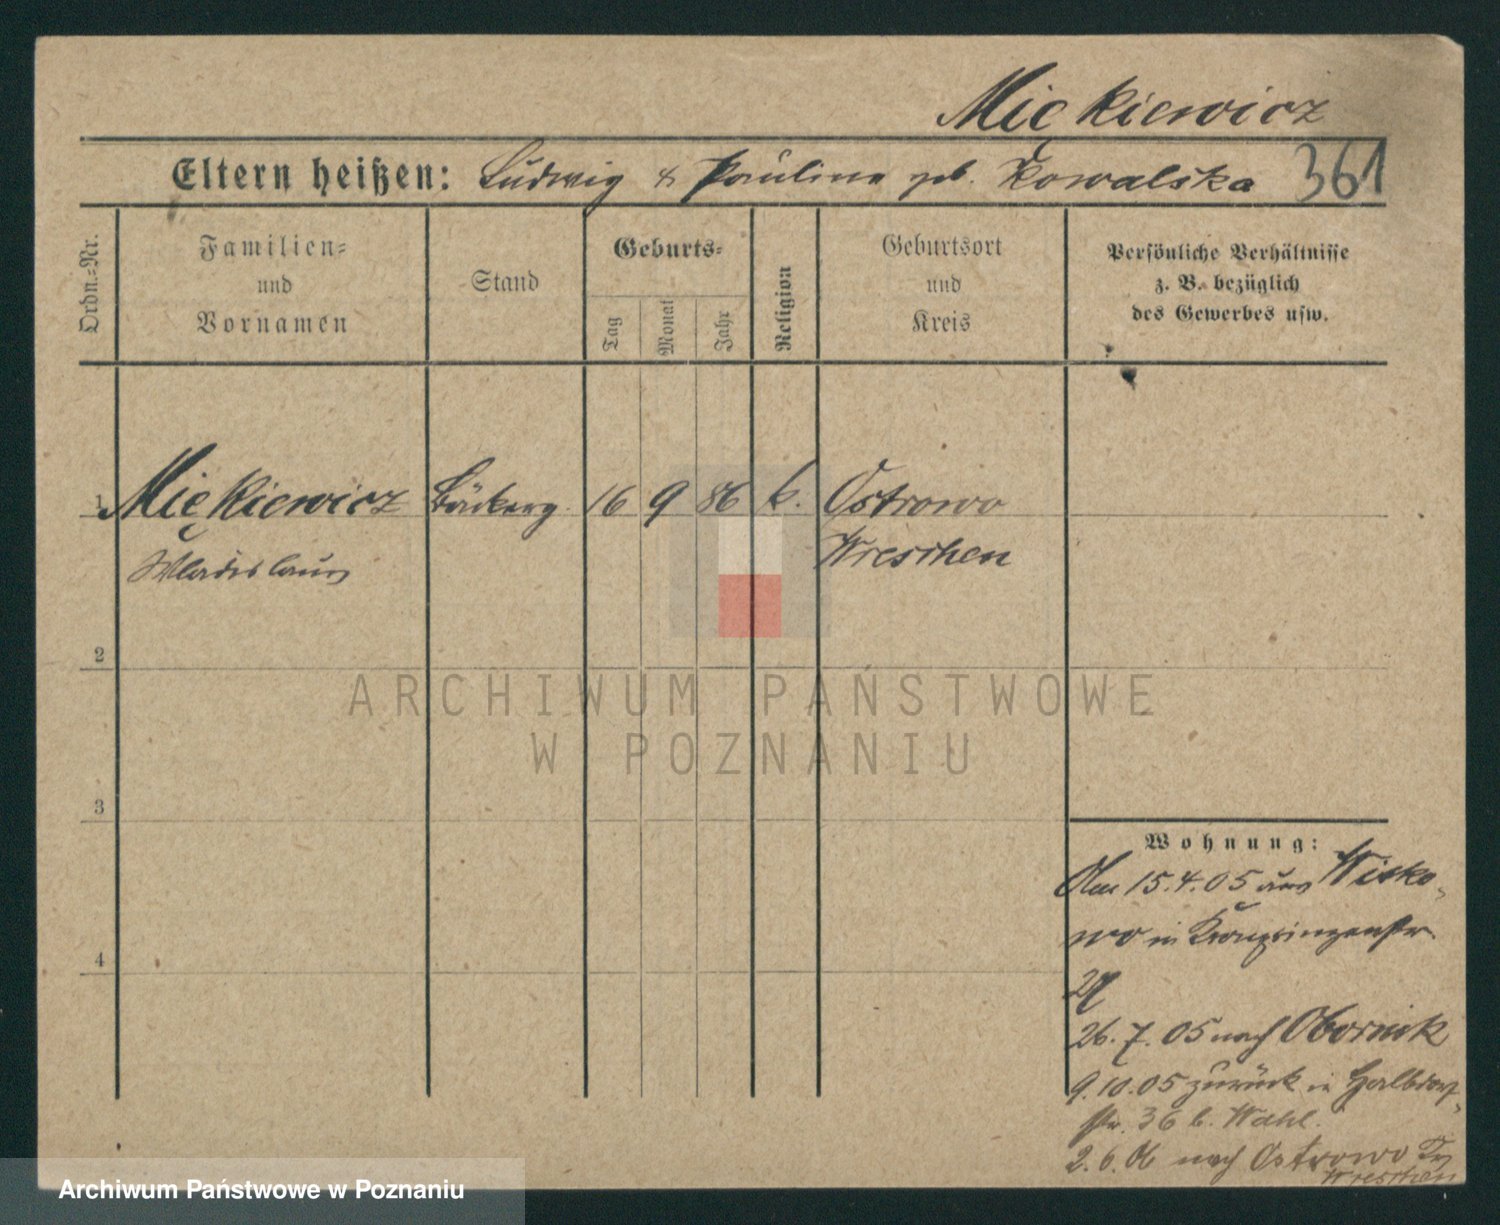 Miękiewicz
Eltern heißen: Ludwig & Paulina geb. Kowalska 361
Ordn.=Nr.
Familien=
und
Vornamen
Stand
Geburts=
Tag
Monat
Jahr
Religion
Geburtsort
und
Kreis
Persönliche Verhältnisse
z. B. bezüglich
des Gewerbes usw.
1 Miękiewicz Bäckerg. 16 9 86 k. Ostrowo
Wladislaus Wreschen
2
3
4
Wohnung:
Am 15.4.05 aus Witko-
wo in Kronprinzenstr.
26.7.05 nach Obornik
9.10.05 zurück in Halbdorf-
str. 36 b. Wahl.
2.6.06 nach Ostrowo
Wreschen
ARCHIWUM PAŃSTWOWE
W POZNANIU
Archiwum Państwowe w Poznaniu